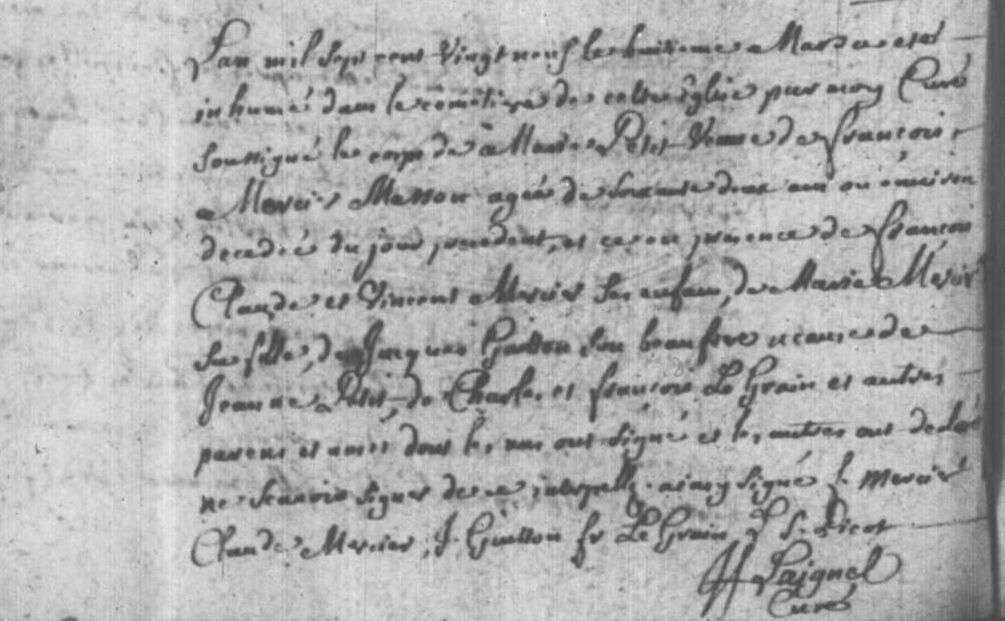 L'an mil sept cent vingt neuf le huitieme Mars a eté
inhumé dans le cimetiere de cette eglise par moy Curé
soussigné le corps de Marie Petit veuve de François
Mercier Masson agée de soixante deux ans ou environ
decedée du jour precedent, et ce en presence de François
Claude et Vincent Mercier ses enfans, de Marie Mercier
sa fille, de Jacques Guitton son beaufrere a cause de
Jeanne Petit, de Charles et François Le Grain et autres
parens et amis dont les uns ont signé et les autres ont declaré
ne scavoir signer de ce interpellés ainsy signé f. mercier
Claude Mercier, J. Guitton fr Le Grain J S. Picot
Laignel
Curé